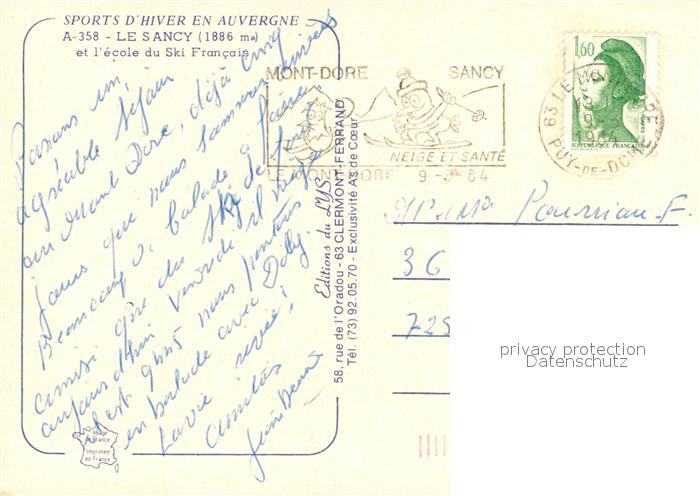 SPORTS D'HIVER EN AUVERGNE
A-358 - LE SANCY (1886 m.)
et l'école du Ski Français
Passons un
agréable séjour
au Mont Dore, déjà cinq
jours que nous sommes arrivés
Beaucoup de balade à faire
ainsi que du ski de fond
aujourd'hui vendredi il neige
c'est quoi nous partons
en balade avec Dolly.
La vie revée!
Amitiés
Image
de France
Imprimée
en France
Editions du LYS
58, rue de l'Oradou - 63 CLERMONT-FERRAND
Tél. (73) 92.05.70 - Exclusivité As de Cœur
MONT-DORE SANCY
NEIGE ET SANTÉ
LE MONT-DORE 9-3 84
63 LE MONT-DORE
1984
PUY-DE-DOME
1,60
REPUBLIQUE FRANÇAISE
36
725
privacy protection
Datenschutz